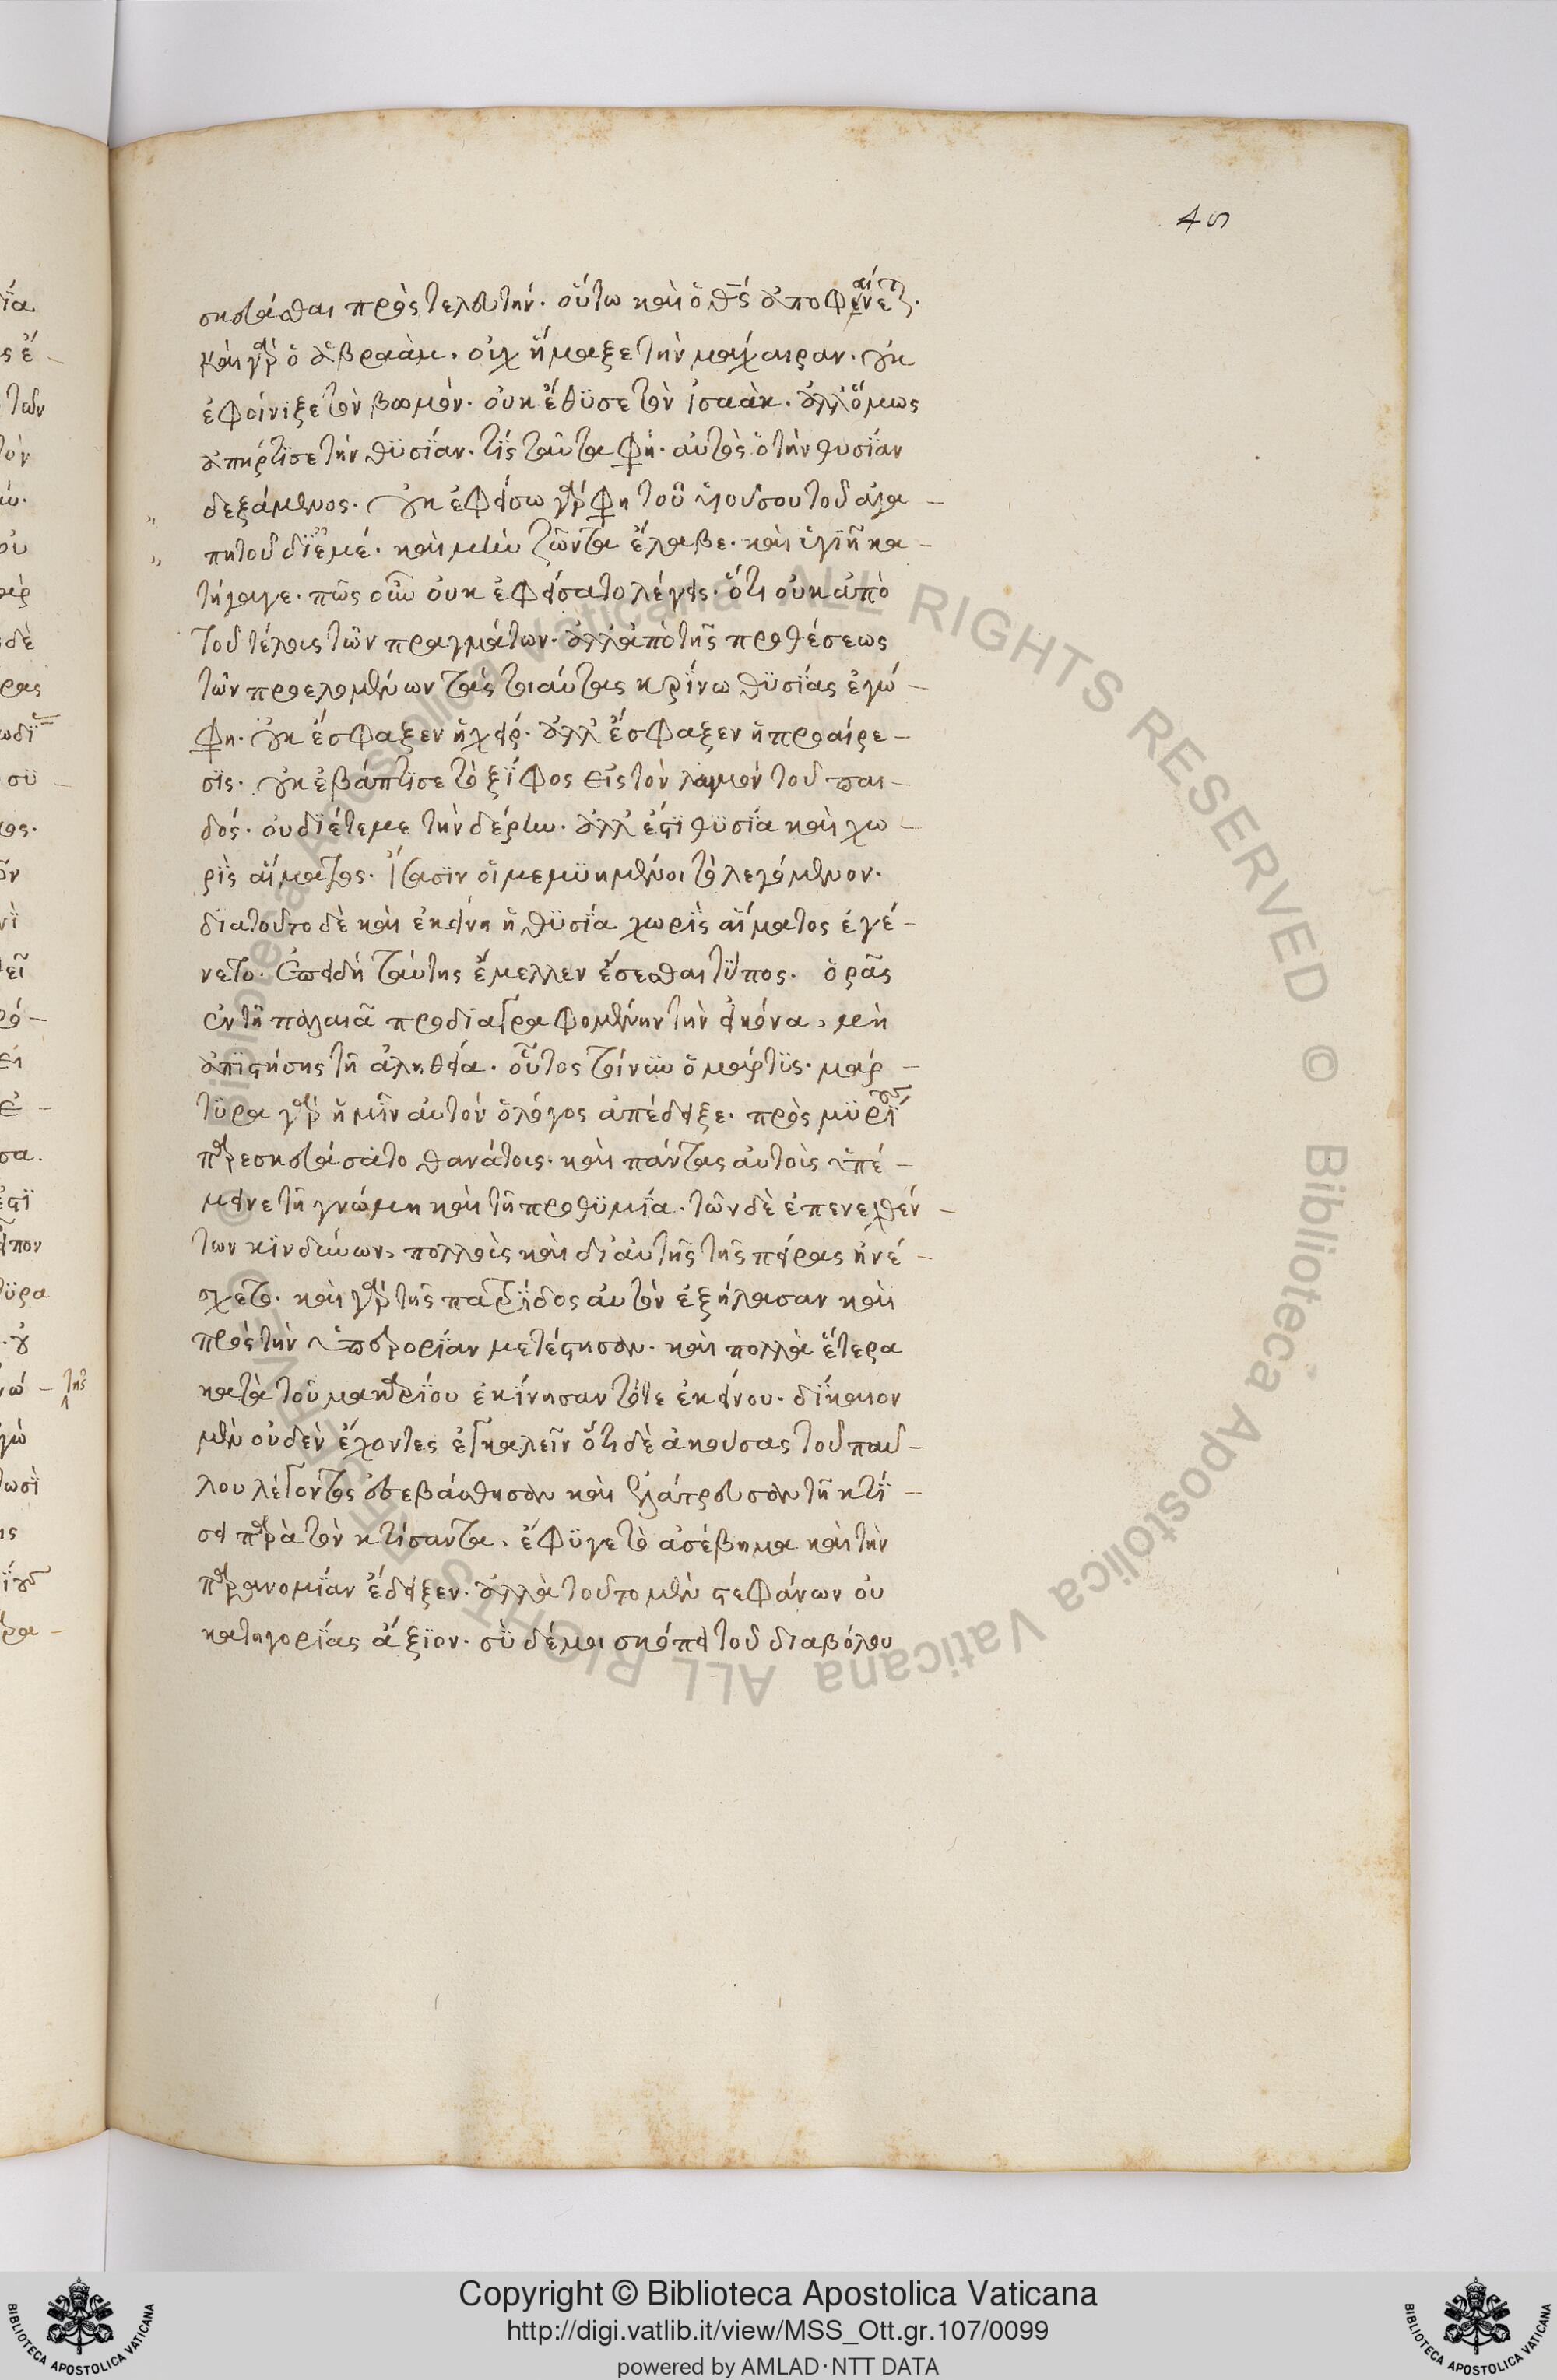 45
σκευάσθαι πρὸς τελευτήν. οὕτω καὶ ὁ θς ἀποφαίνεται.
καὶ γὰρ ὁ ἀβραὰμ. οὐχ ἥμαξε τὴν μάχαιραν. οὐκ
ἐφοίνιξε τὸν βωμόν. οὐκ ἔθϋσε τὸν ἰσαὰκ. ἀλλ' ὅμως
ἀπήρτϊσε τὴν θϋσΐαν. τΐς ταῦτα φη. αὐτὸς ὁ τὴν θυσΐαν
δεξάμενος. οὐκ ἐφείσω γάρ φη τοῦ ϋἱοῦ σου τοῦ ἀγα –
πητοῦ δϊ ἐμέ. καὶ μὴν ζῶντα ἔλαβε. καὶ ὑγιῆ κα –
τήγαγε. πῶς οὖν οὐκ ἐφείσατο λέγεις. ὅτι οὐκ ἀπὸ
τοῦ τέλους τῶν πραγμάτων. ἀλλ' ἀπὸ τῆς προθέσεως
τῶν προελομένων τὰς τοιαύτας κρΐνω θϋσΐας ἐγώ –
φη. οὐκ ἔσφαξεν ἡ χείρ. ἀλλ' ἔσφαξεν ἡ προαίρε –
σϊς. οὐκ ἐβάπτϊσε τὸ ξΐφος εἰς τὸν λαιμὸν τοῦ παι –
δός. οὐ δϊέτεμε τὴν δέρην. ἀλλ' ἐστϊ θϋσΐα καὶ χω –
ρϊς αἵματος. ἴσασϊν οἱ μεμϋημένοι τὸ λεγόμενον.
διατοῦτο δὲ καὶ ἐκείνη ἡ θϋσΐα χωρϊς αἵματος ἐγέ –
νετο. ἐπειδὴ ταύτης ἔμελλεν ἔσεσθαι τϋπος. ὁρᾶς
ἐν τῆ παλαιᾶ προδϊαγραφομένην τὴν εἰκόνα, μὴ
ἀπϊστήσης τῆ ἀληθεία. οὗτος τοίνυν ὁ μάρτϋς. μάρ –
τϋρα γὰρ ἡμῖν αὐτὸν ὁ λόγος ἀπέδειξε. πρὸς μϋρΐους
παρεσκευάσατο θανάτους. καὶ πάντας αὐτοὺς ὑπέ –
μεινε τῆ γνώμη καὶ τῆ προθϋμΐα. τῶν δὲ ἐπενεχθέν –
των κϊνδύνων, πολλοὺς καὶ δι' αὐτῆς τῆς πείρας ἠνέ –
σχετο. καὶ γὰρ τῆς πατρΐδος αὐτὸν ἐξήλασαν καὶ
πρὸς τὴν ὑπερορΐαν μετέστησαν. καὶ πολλὰ ἕτερα
κατὰ τοῦ μακαρΐου ἐκΐνησαν τότε ἐκείνου. δΐκαιον
μὲν οὐδὲν ἔχοντες ἐγκαλεῖν ὅτι δὲ ἀκούσας τοῦ παύ –
λου λέγοντος ἐσεβάσθησαν καὶ ἐλάτρευσαν τῆ κτΐ –
σει παρὰ τὸν κτίσαντα, ἔφϋγε τὸ ἀσέβημα καὶ τὴν
παρανομΐαν ἔδειξεν. ἀλλὰ τοῦτο μὲν στεφάνων οὐ
κατηγορΐας ἄξϊον. σὺ δέ μοι σκόπει τοῦ διαβόλου
Copyright © Biblioteca Apostolica Vaticana
http://digi.vatlib.it/view/MSS_Ott.gr.107/0099
powered by AMLAD·NTT DATA